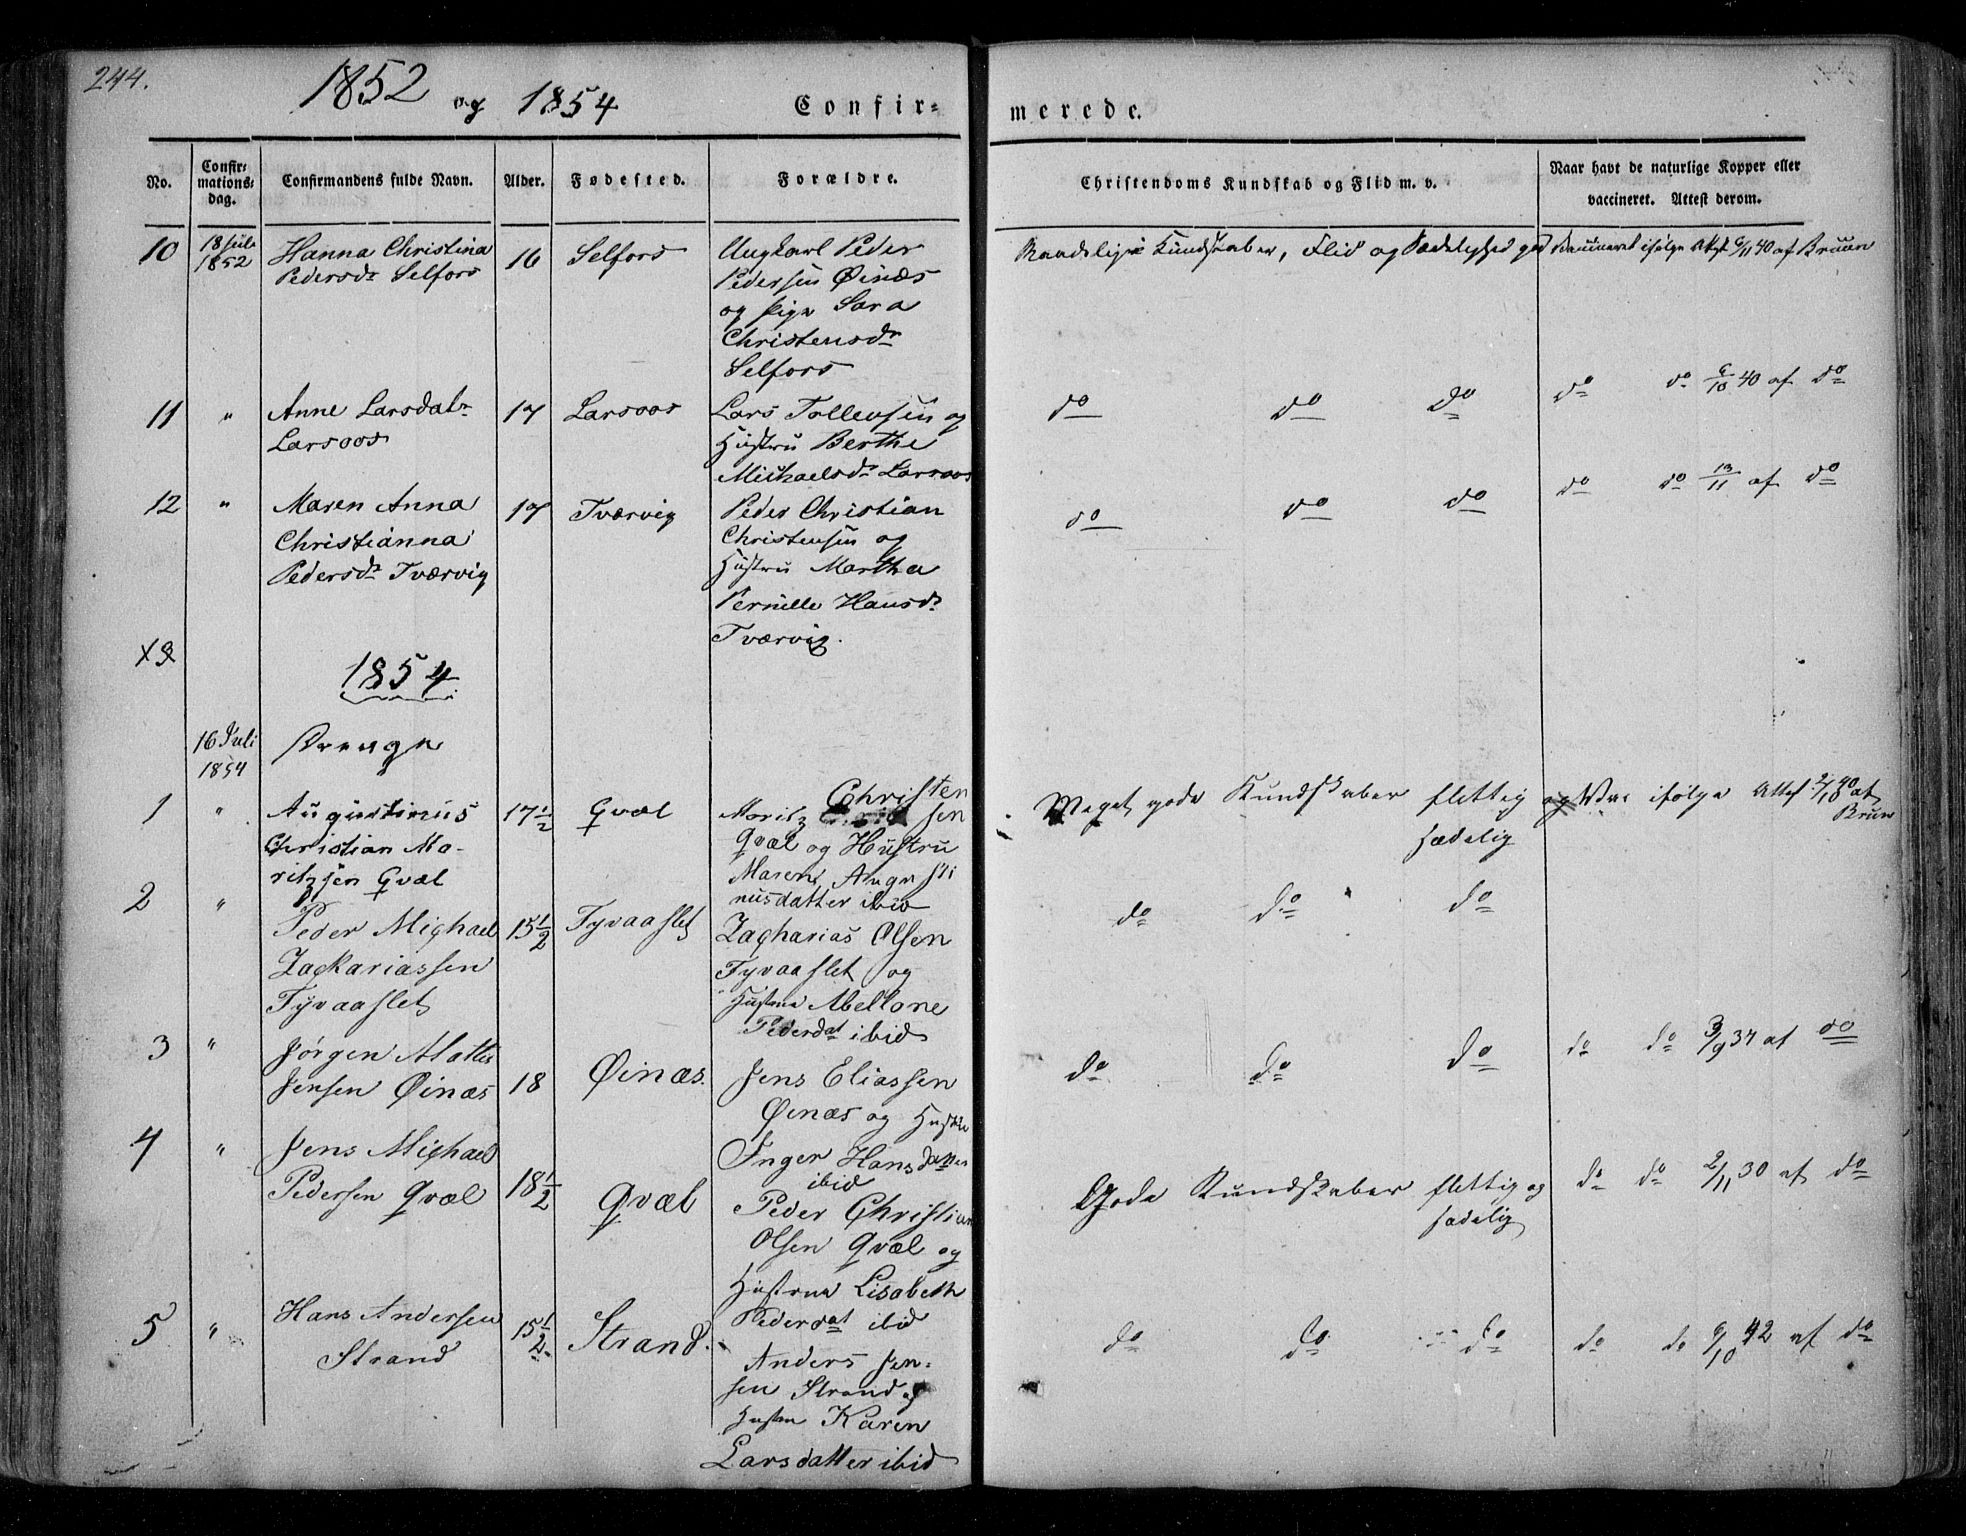 244.
1852 og 1854
Confir-
merede.
No.
Confir-
mations-
dag.
Confirmandens fulde Navn.
Alder.
Fødested.
Forældre.
Christendoms Kundskab og Flid m. v.
Naar havt de naturlige Kopper eller
vaccineret. Attest derom.
10
18 Juli
1852
Hanna Christina
Pedersdr Selfors
16
Selfors
Ungkarl Peder
Pedersen Øinæs
og Pige Sara
Christensdr
Selfors
Maadelige Kundskaber, Flid og Sædelighed god
Vaccineret ifølge Attest 6/11 40 af Bruun
11
"
Anne Larsdatr
Larsoos
17
Larsoos
Lars Tollevsen og
Hustru Berthe
Michaelsdr Larsoos
do do do
do do 6/10 40 af do
12
"
Maren Anna
Christianna
Pedersdr Tværvig
17
Tværvig
Peder Christian
Christensen og
Hustru Martha
Pernille Hansdr
Tværvig.
do do do
do do 13/11 af do
1854
16 Juli
1854
Drenge
1
"
Augustinus
Christian Mo-
ritzsen Qvæl
17 1/2
Qvæl
Christen
Moritz sen
Qvæl og Hustru
Maren Augusti
nusdatter ibid
Meget gode Kundskaber flittig og
sædelig
Vac ifølge Attest 2/10 40 af
Bruun
2
"
Peder Michael
Zachariassen
Tyvaaslet
15 1/2
Tyvaaslet
Zacharias Olsen
Tyvaaslet og
Hustru Abellone
Pederdat ibid
do do do
3
"
Jørgen Mathis
Jensen Øinæs
18
Øinæs.
Jens Eliassen
Øinæs og Hustru
Inger Hansdatter
ibid
do do do
do do 3/9 37 af do
4
"
Jens Michael
Pedersen Qvæl
18 1/2
Qvæl
Peder Christian
Olsen Qvæl og
Hustrue Lisabeth
Pederdat ibid
Gode Kundskaber flittig og
sædelig
do do 2/11 30 af do
5
"
Hans Andersen
Strand
15 1/2
Strand.
Anders Jen-
sen Strand og
Hustru Karen
Larsdatter ibid
do do do
do do 6/10 42 af do